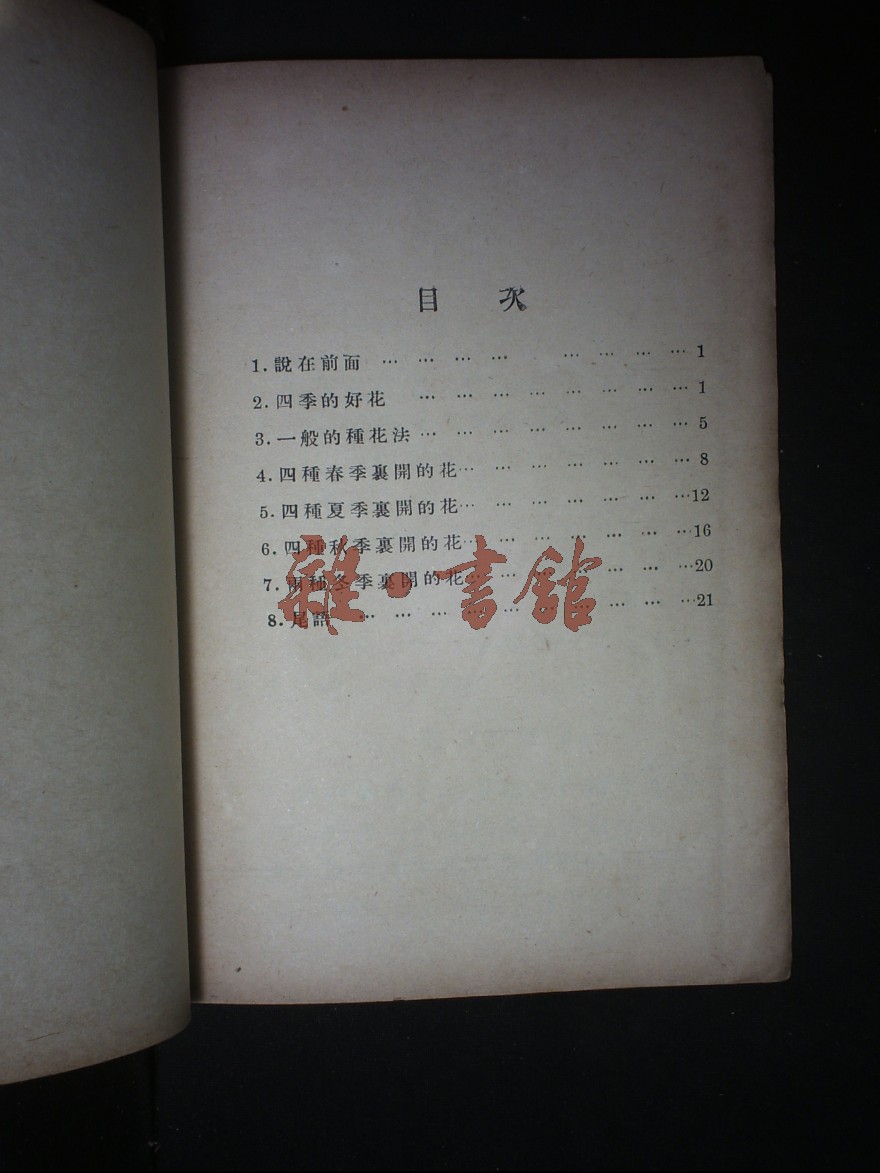 目 次
1.說在前面 … … … … … … … … 1
2.四季的好花 … … … … … … … … 1
3.一般的種花法 … … … … … … … … 5
4.四種春季裏開的花 … … … … … … … 8
5.四種夏季裏開的花 … … … … … … …12
6.四種秋季裏開的花 … … … … … … …16
7.兩種冬季裏開的花 … … … … … … …20
8.尾語 … … … … … … … … … …21
雜·書館